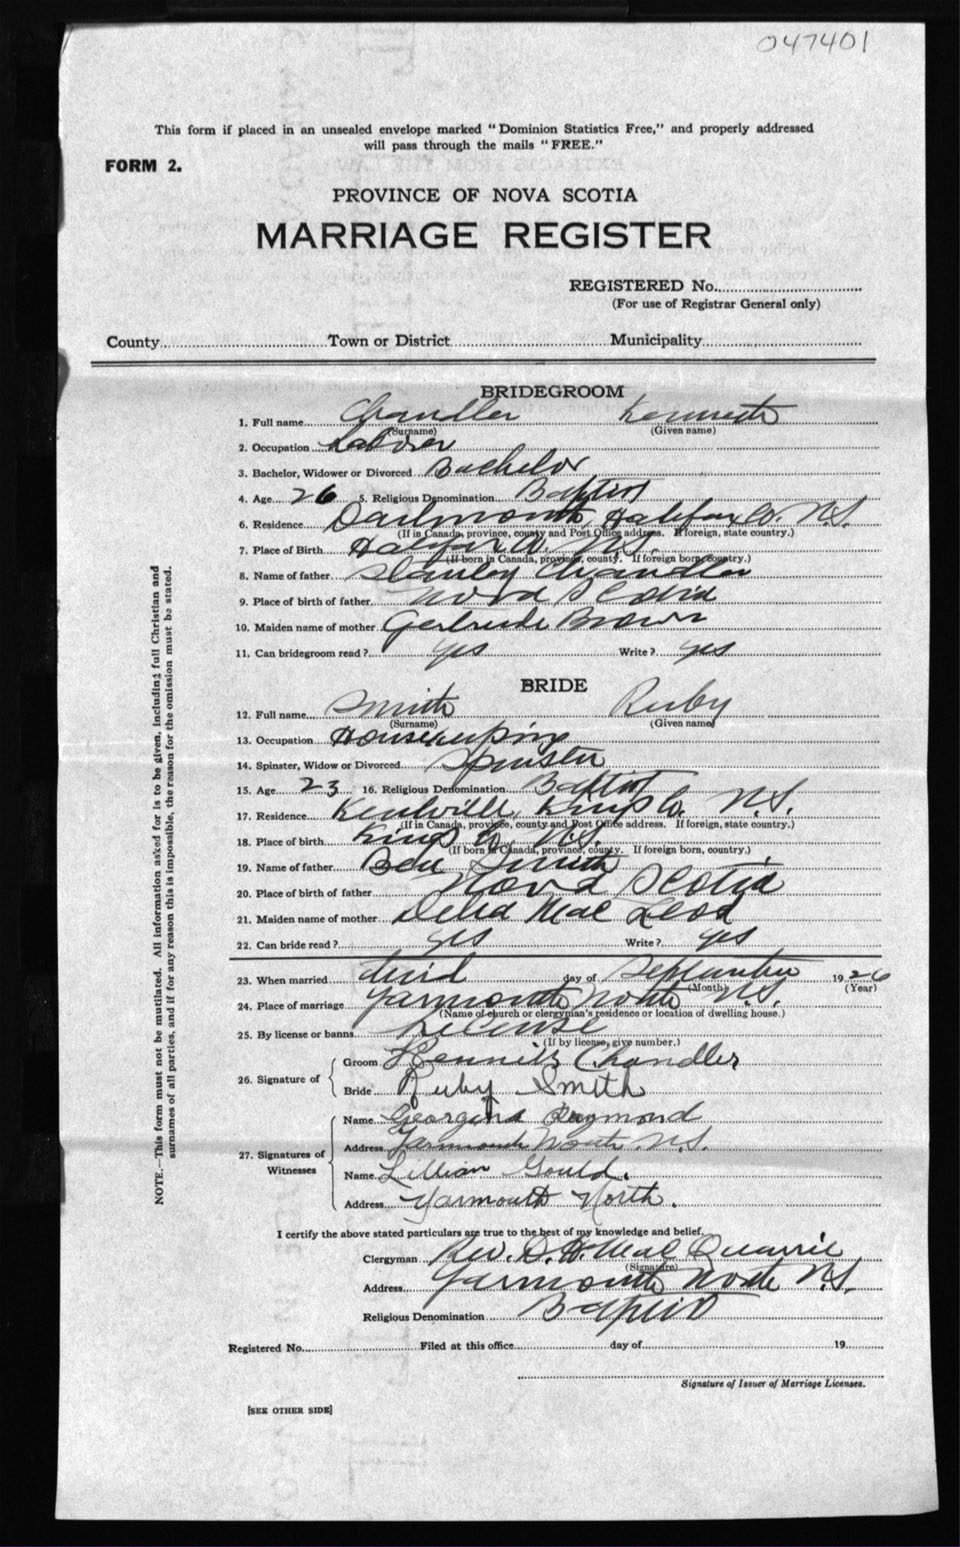 047401
This form if placed in an unsealed envelope marked "Dominion Statistics Free," and properly addressed
will pass through the mails "FREE."
FORM 2.
PROVINCE OF NOVA SCOTIA
MARRIAGE REGISTER
REGISTERED No.
(For use of Registrar General only)
County Town or District Municipality
BRIDEGROOM
1. Full name Chandler Kenneth
(Surname) (Given name)
2. Occupation Labourer
3. Bachelor, Widower or Divorced Bachelor
4. Age 26 5. Religious Denomination Baptist
6. Residence Dartmouth, Halifax Co. N.S.
(If in Canada, province, county and Post Office address. If foreign, state country.)
7. Place of Birth Halifax Co. N.S.
(If born in Canada, province, county. If foreign born, country.)
8. Name of father Stanley Chandler
9. Place of birth of father Nova Scotia
10. Maiden name of mother Gertrude Brown
11. Can bridegroom read? yes Write? yes
BRIDE
12. Full name Smith Ruby
(Surname) (Given name)
13. Occupation Housekeeping
14. Spinster, Widow or Divorced Spinster
15. Age 23 16. Religious Denomination Baptist
17. Residence Kentville, Kings Co. N.S.
(If in Canada, province, county and Post Office address. If foreign, state country.)
18. Place of birth Kings Co. N.S.
(If born in Canada, province, county. If foreign born, country.)
19. Name of father Ben Smith
20. Place of birth of father Nova Scotia
21. Maiden name of mother Delia MacLeod
22. Can bride read? yes Write? yes
23. When married third day of September 1926
(Month) (Year)
24. Place of marriage Yarmouth North N.S.
(Name of church or clergyman's residence or location of dwelling house.)
25. By license or banns License
(If by license, give number.)
26. Signature of
Groom Kenneth Chandler
Bride Ruby Smith
27. Signatures of Witnesses
Name Georgina Raymond
Address Yarmouth North N.S.
Name Lillian Gould.
Address Yarmouth North.
I certify the above stated particulars are true to the best of my knowledge and belief.
Clergyman Rev. D. H. MacQuarrie
(Signature)
Address Yarmouth North N.S.
Religious Denomination Baptist
Registered No. Filed at this office day of 19
Signature of Issuer of Marriage Licenses.
[SEE OTHER SIDE]
NOTE.—This form must not be mutilated. All information asked for is to be given, including full Christian and
surnames of all parties, and if for any reason this is impossible, the reason for the omission must be stated.